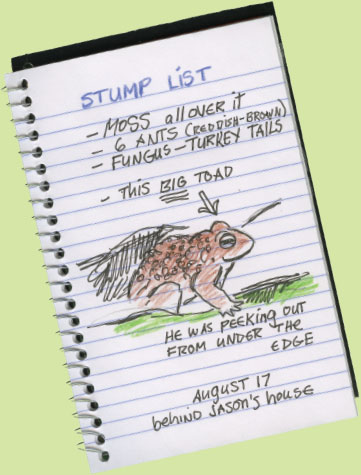 STUMP LIST
- MOSS all over it
- 6 ANTS (REDDISH-BROWN)
- FUNGUS-TURKEY TAILS
- THIS BIG TOAD
HE WAS PEEKING OUT
FROM UNDER THE
EDGE
AUGUST 17
behind JASON'S house